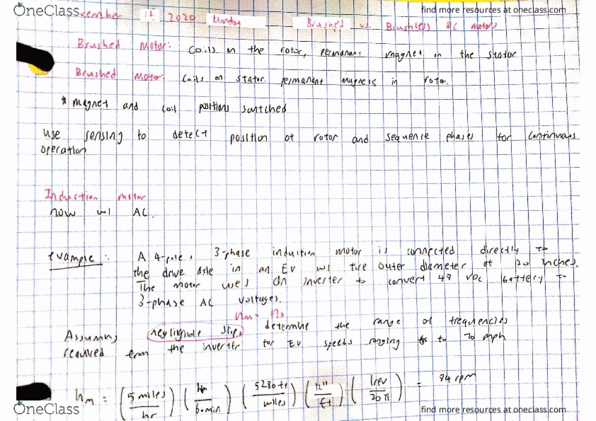 OneClass
find more resources at oneclass.com
vember 2020 Monday Brushed vs. Brushless DC motors
Brushed Motor: Coils on the rotor, permanent magnet in the stator
Brushed Motor: Coils on stator permanent magnets in rotor.
* magnet and coil positions switched
use sensing to detect position of rotor and sequence phases for continuous
operation
Induction motor
now w/ AC.
example: A 4-pole, 3-phase induction motor is connected directly to
the drive axle in an EV w/ tire outer diameter of 20 inches.
The motor uses an inverter to convert 48 VDC battery to
3-phase AC voltages.
nm = ns
Assuming negligible slip, determine the range of frequencies
required from the inverter for EV speeds ranging to 70 mph
nm = (5 miles/hr) (hr/60 min) (5280 ft/miles) (12"/ft) (1rev/20π) = 84 rpm
OneClass
find more resources at oneclass.com